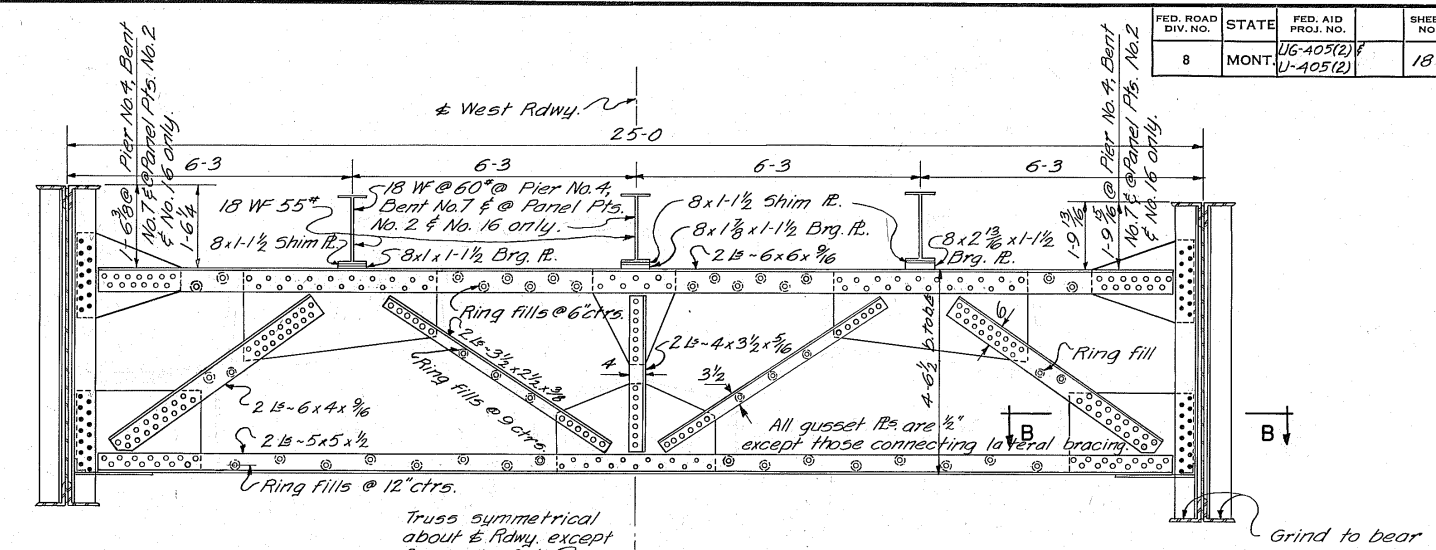 FED. ROAD DIV. NO.
STATE
FED. AID PROJ. NO.
8
MONT.
UG-405(2) &
U-405(2)
18
℄ West Rdwy.
25-0
6-3
6-3
6-3
6-3
1-6 3/8 @ Pier No. 4, Bent
No. 7 & @ Panel Pts. No. 2
& No. 16 only.
1-6 1/4
18 WF @ 60# @ Pier No. 4,
Bent No. 7 & @ Panel Pts.
No. 2 & No. 16 only.
18 WF 55#
8x1-1½ Shim ℔.
8x1x1-1½ Brg. ℔.
8x1-1½ Shim ℔.
8x1⅞x1-1½ Brg. ℔.
2 Ls~6x6x9/16
8x2 13/16 x1-1½
Brg. ℔.
1-9 13/16
1-9 5/16 @ Pier No. 4, Bent
No. 7 & @ Panel Pts. No. 2
& No. 16 only.
Ring fills @ 6" ctrs.
2 Ls~3½x2½x3/8
Ring fills @ 9 ctrs.
4
2 Ls~4x3½x5/16
3½
4-6½ b. to b. Ls
6
Ring fill
2 Ls~6x4x9/16
2 Ls~5x5x½
Ring fills @ 12" ctrs.
All gusset ℔s. are ½"
except those connecting lateral bracing.
B
B
Truss symmetrical
about ℄ Rdwy. except
Grind to bear